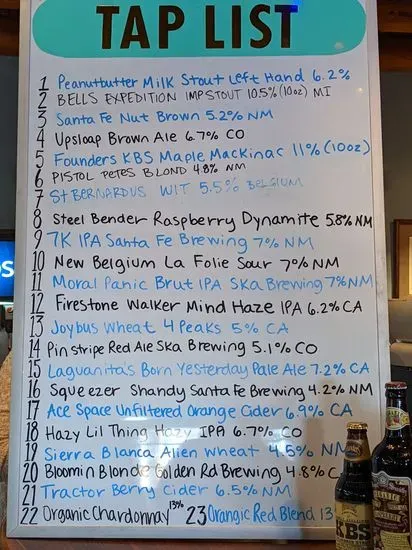 TAP LIST
1 Peanutbutter Milk Stout Left Hand 6.2%
2 BELLS EXPEDITION IMP STOUT 10.5% (10oz) MI
3 Santa Fe Nut Brown 5.2% NM
4 Upsloap Brown Ale 6.7% CO
5 Founders KBS Maple Mackinac 11% (10oz)
6 PISTOL PETES BLOND 4.8% NM
7 St BERNARDUS WIT 5.5% BELGIUM
8 Steel Bender Raspberry Dynamite 5.8% NM
9 7K IPA Santa Fe Brewing 7% NM
10 New Belgium La Folie Sour 7% NM
11 Moral Panic Brut IPA Ska Brewing 7% NM
12 Firestone Walker Mind Haze IPA 6.2% CA
13 Joybus Wheat 4 Peaks 5% CA
14 Pinstripe Red Ale Ska Brewing 5.1% CO
15 Laguanita's Born Yesterday Pale Ale 7.2% CA
16 Squeezer Shandy Santa Fe Brewing 4.2% NM
17 Ace Space Unfiltered Orange Cider 6.9% CA
18 Hazy Lil Thing Hazy IPA 6.7% CO
19 Sierra Blanca Alien Wheat 4.5% NM
20 Bloomin Blonde Golden Rd Brewing 4.8% C
21 Tractor Berry Cider 6.5% NM
22 Organic Chardonnay 13% 23 Orangic Red Blend 13
KBS